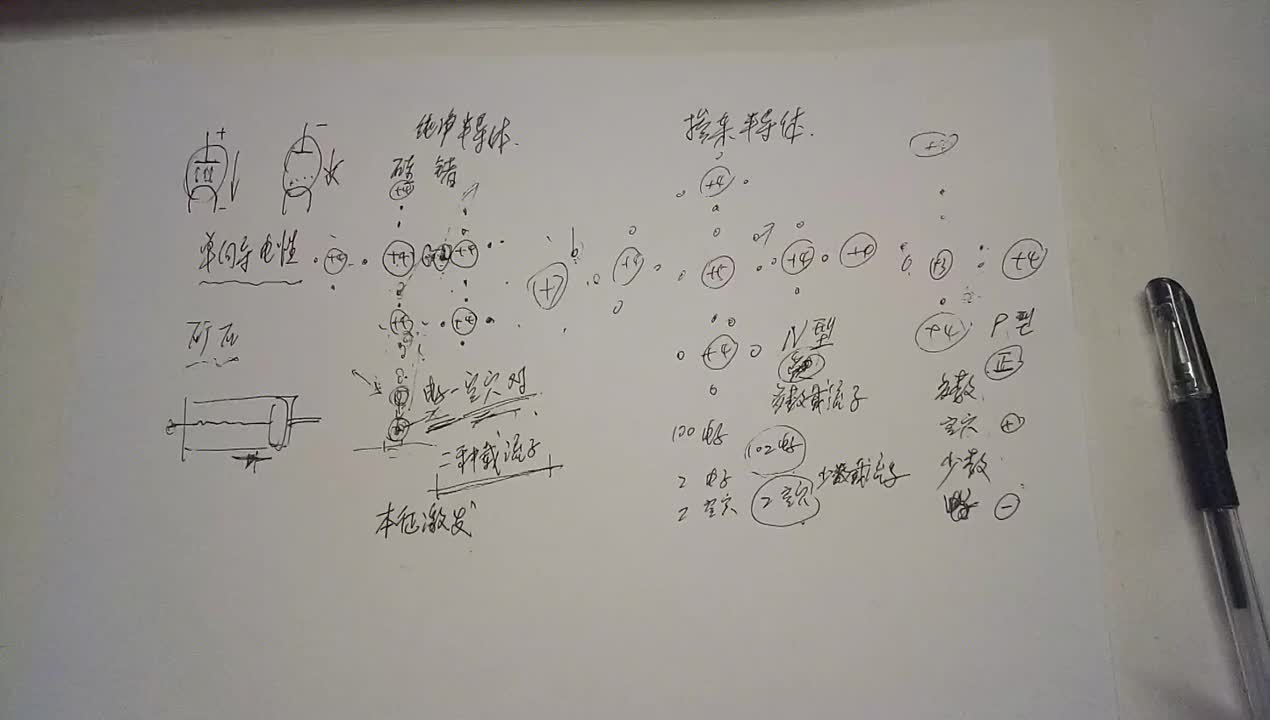 纯净半导体.
硅 锗
+4
+4 +4 +4
+4 +4
电子-空穴对
二种载流子
本征激发
+ -
单向导电性
矿石
掺杂半导体.
+4
+ +4 +5 +4 +4
+4
N型
多数载流子
100 电子 102电子
2 电子 少数载流子
2 空穴 2空穴
+3 +4
+4 P型
正
多数
空穴 +
少数
电子 -